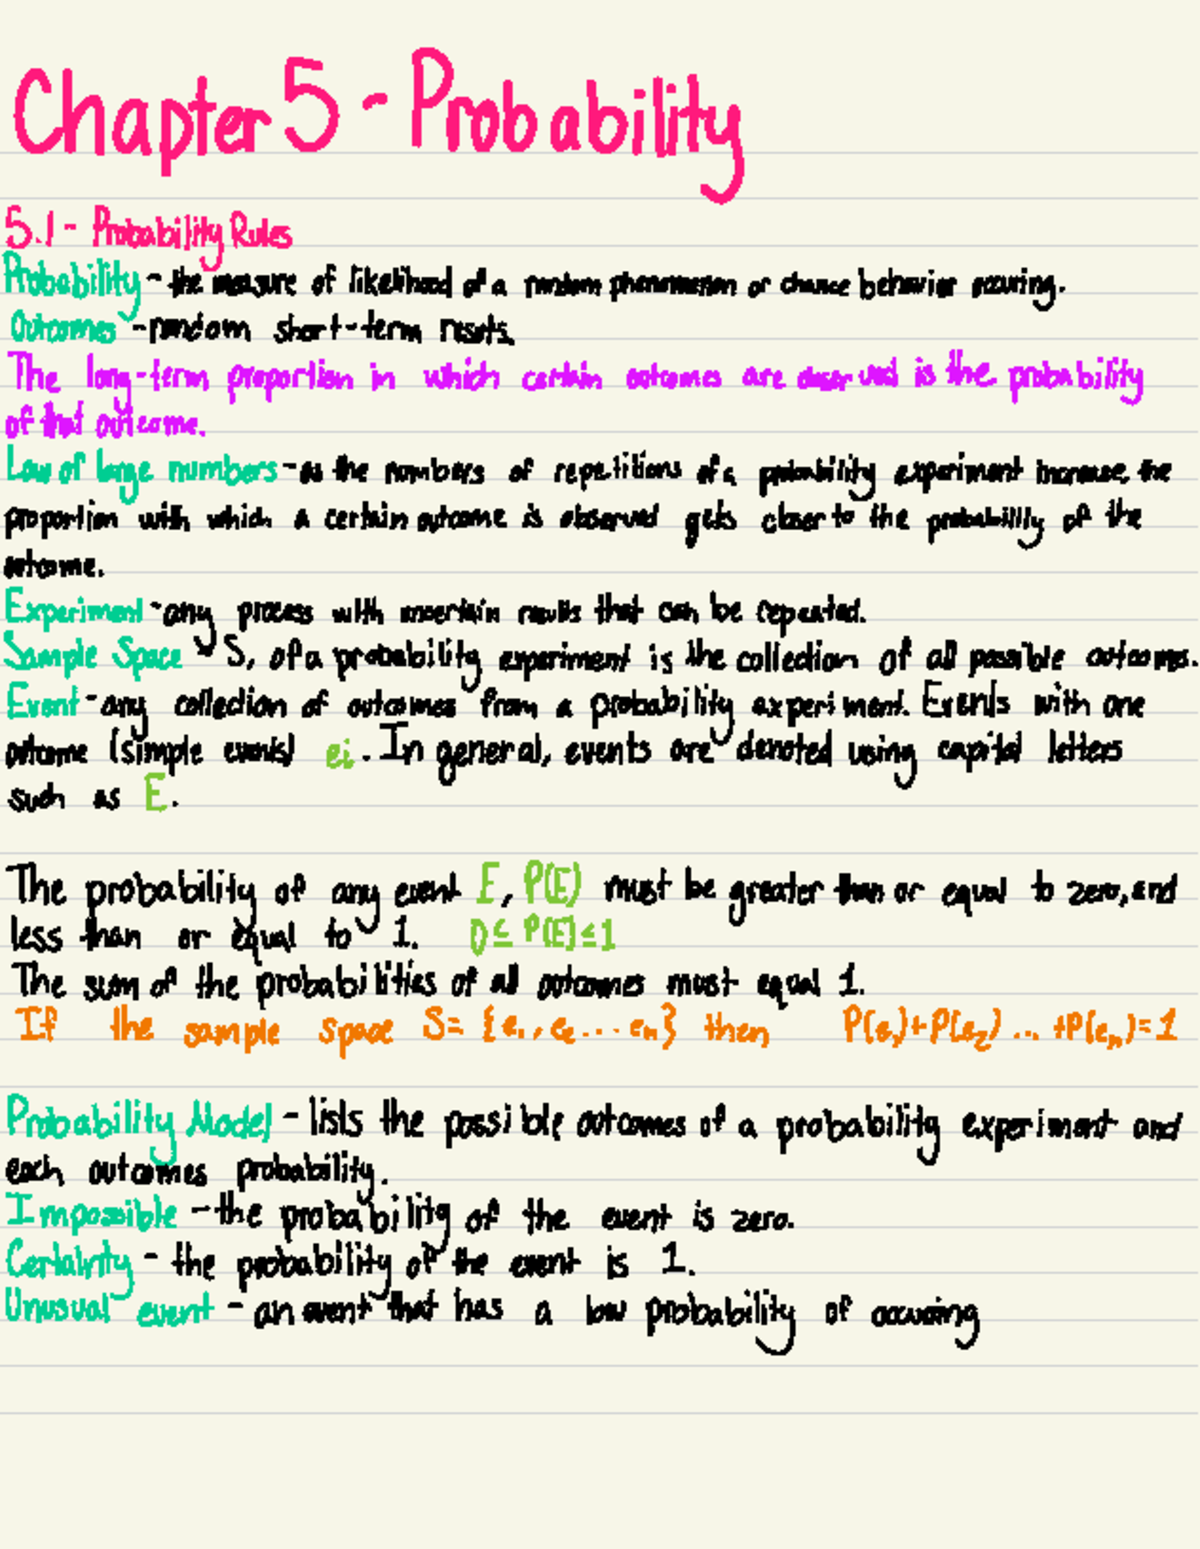 Chapter 5 - Probability
5.1 - Probability Rules
Probability - the measure of likelihood of a random phenomenon or chance behavior occuring.
Outcomes - random short-term results.
The long-term proportion in which certain outcomes are observed is the probability
of that outcome.
Law of large numbers - as the numbers of repetitions of a probability experiment increase, the
proportion with which a certain outcome is observed gets closer to the probability of the
outcome.
Experiment - any process with uncertain results that can be repeated.
Sample Space - S, of a probability experiment is the collection of all possible outcomes.
Event - any collection of outcomes from a probability experiment. Events with one
outcome (simple events) ei. In general, events are denoted using capital letters
such as E.
The probability of any event E, P(E) must be greater than or equal to zero, and
less than or equal to 1. 0 ≤ P(E) ≤ 1
The sum of the probabilities of all outcomes must equal 1.
If the sample space S = {e₁, e₂ ... eₙ} then P(e₁)+P(e₂) ... +P(eₙ)=1
Probability Model - lists the possible outcomes of a probability experiment and
each outcomes probability.
Impossible - the probability of the event is zero.
Certainty - the probability of the event is 1.
Unusual event - an event that has a low probability of occuring